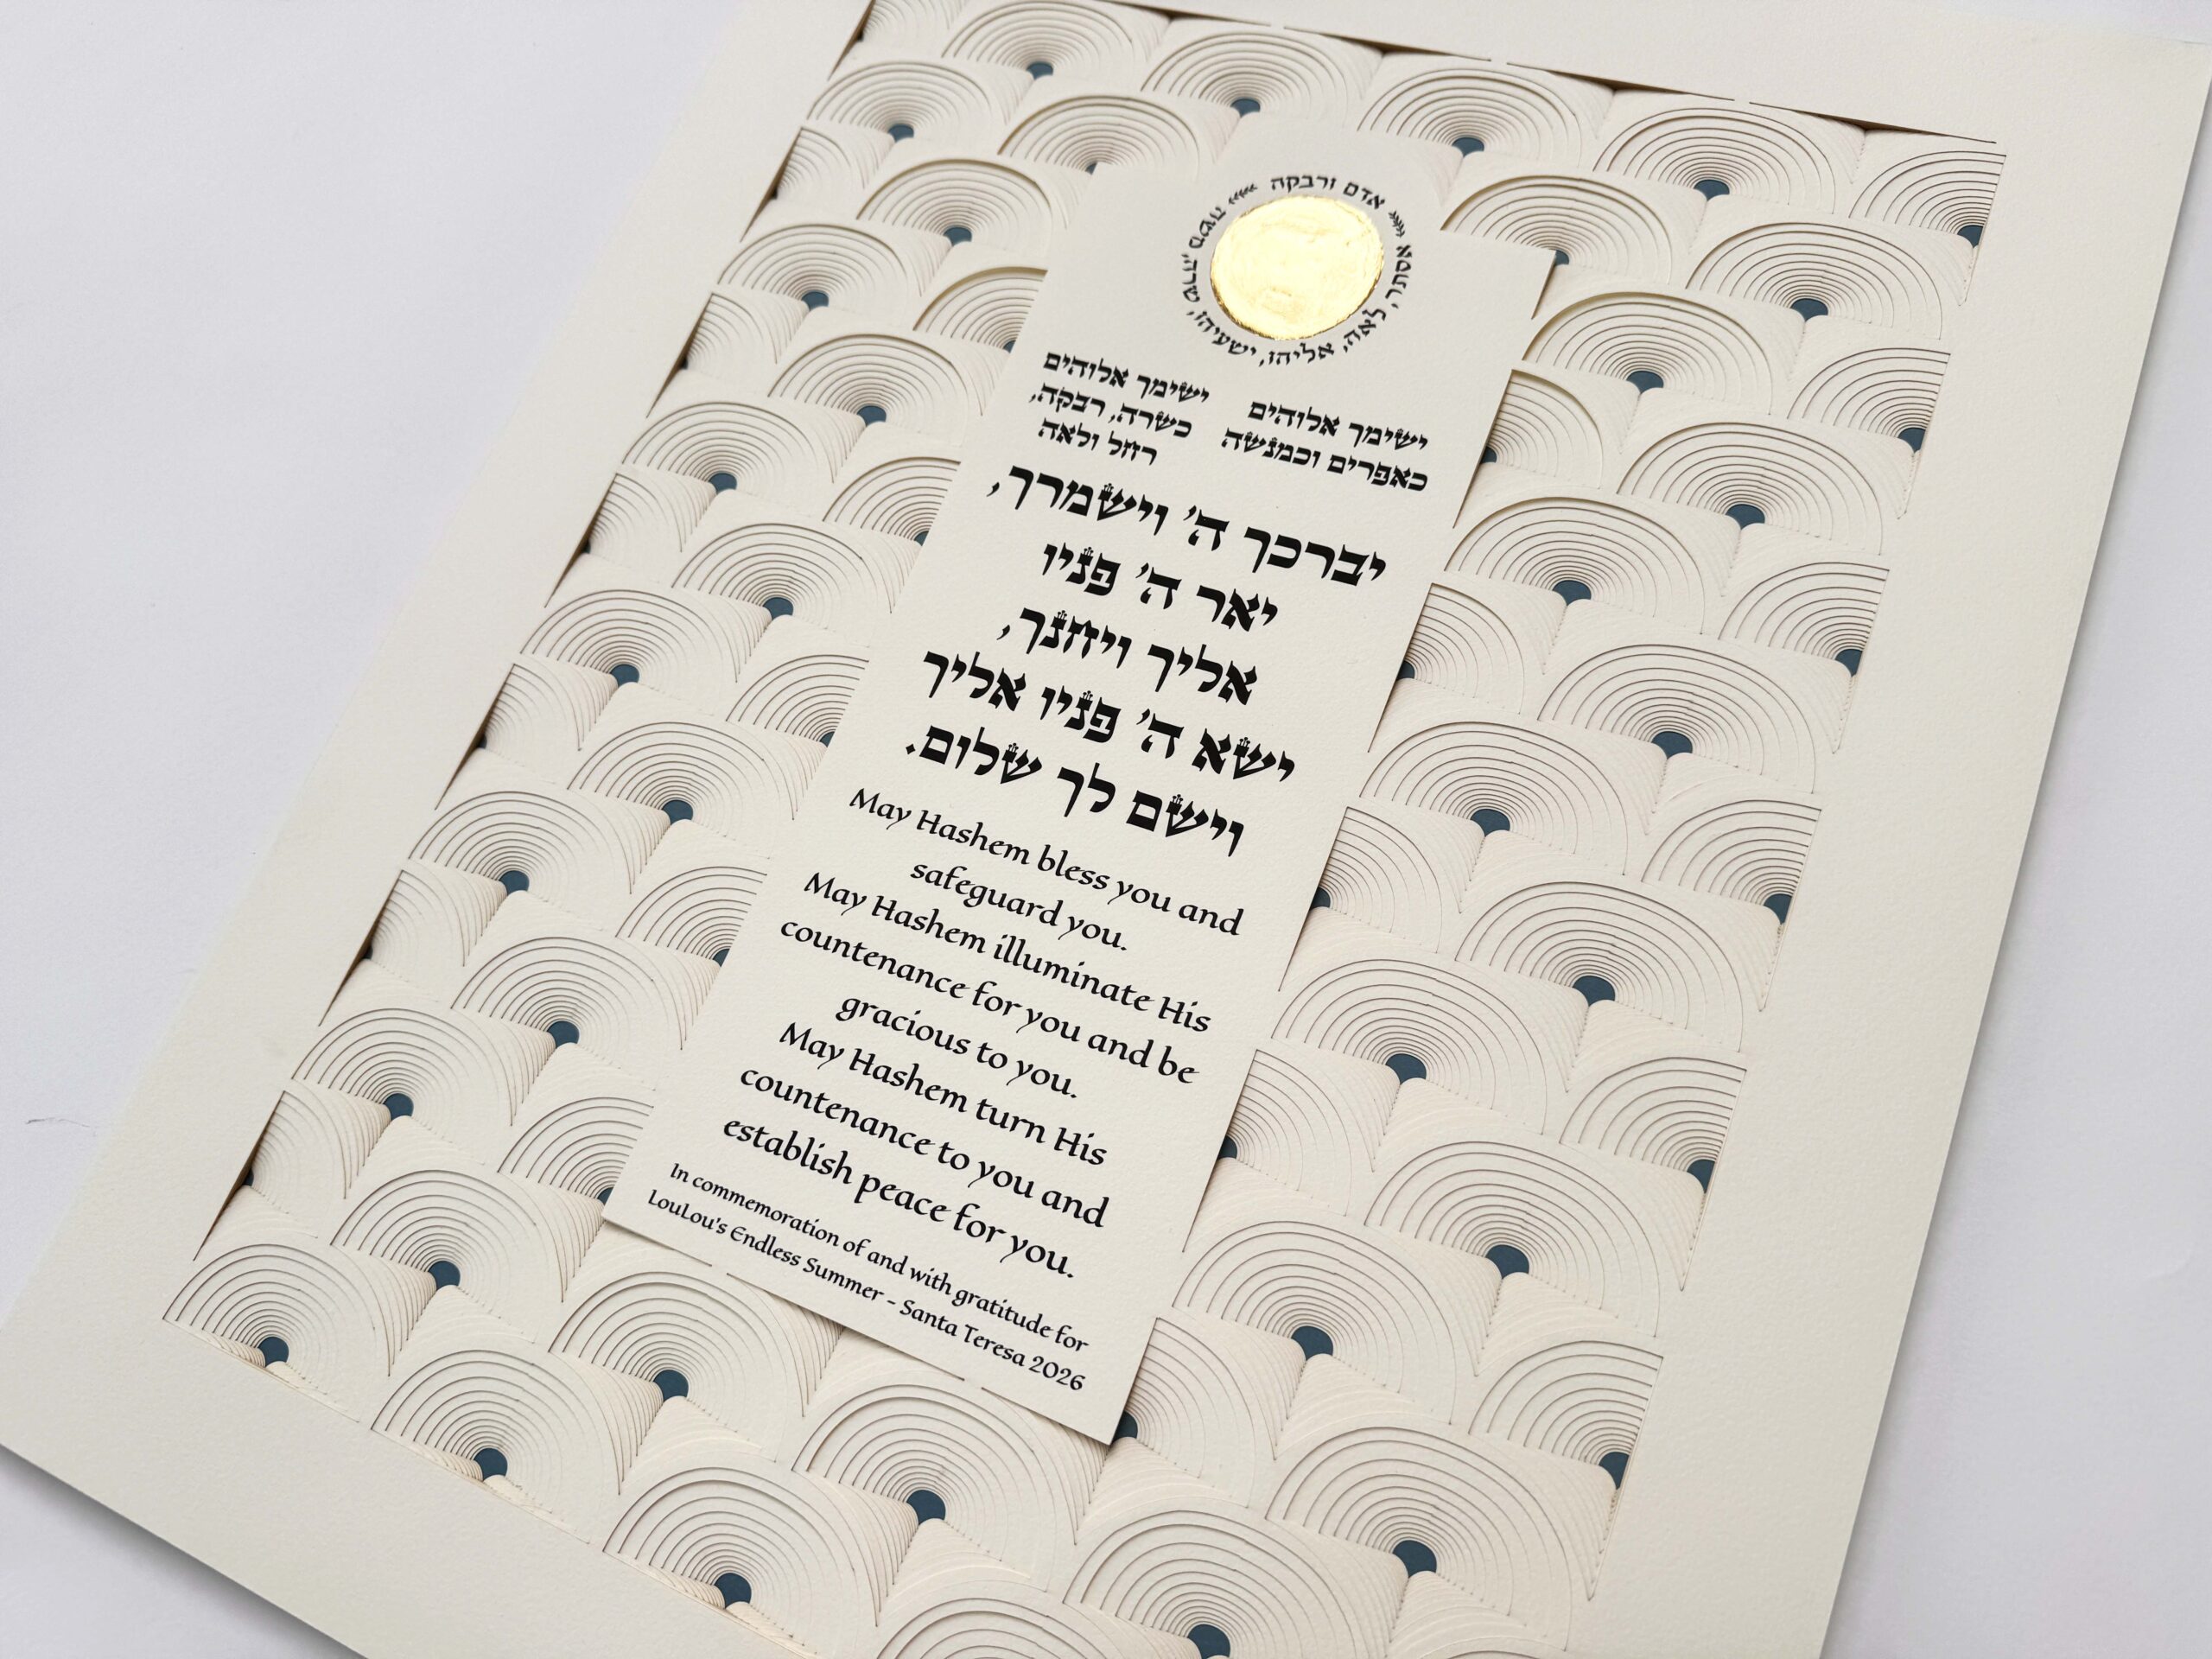 אדם ורבקה
אסתר, לאה, אליהו, ישעיהו, שרה, משה
ישימך אלוהים
כאפרים וכמנשה
ישימך אלוהים
כשרה, רבקה,
רחל ולאה
יברכך ה' וישמרך,
יאר ה' פניו
אליך ויחנך,
ישא ה' פניו אליך
וישם לך שלום.
May Hashem bless you and
safeguard you.
May Hashem illuminate His
countenance for you and be
gracious to you.
May Hashem turn His
countenance to you and
establish peace for you.
In commemoration of and with gratitude for
LouLou's Endless Summer - Santa Teresa 2026